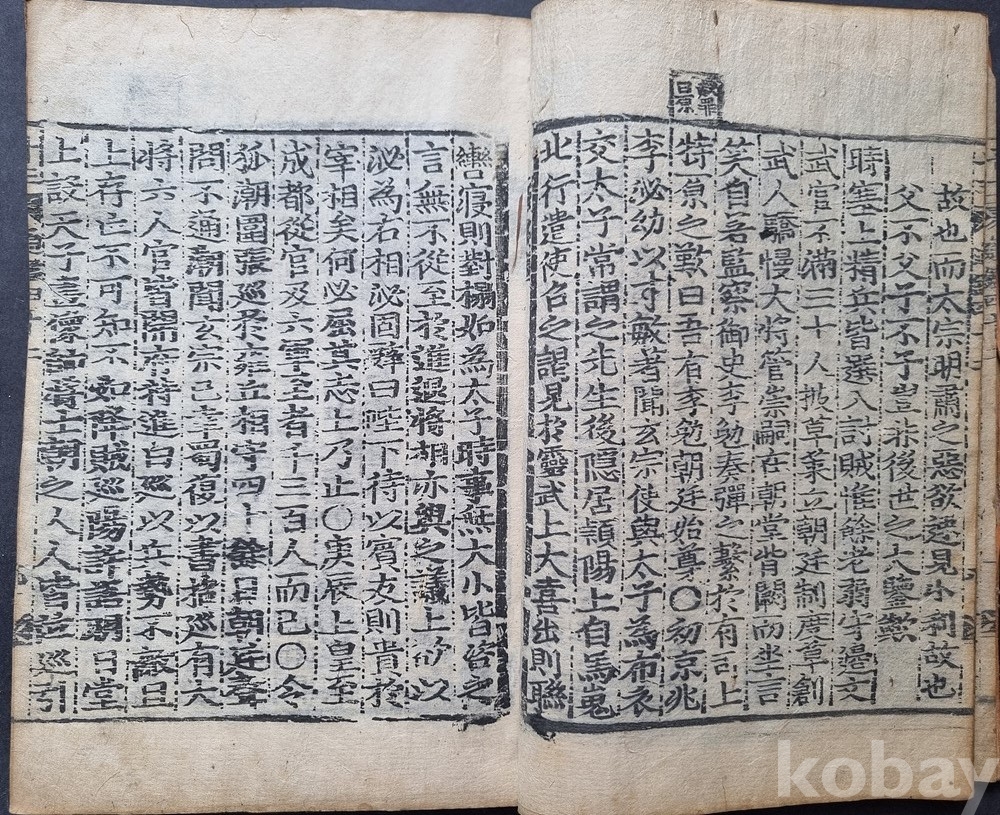 故也而太宗明肅之惡欲速見小利故也
父不父子不子豈非後世之大鑒歟
時塞上精兵皆選入討賊惟餘老弱守邊文
武官不滿三十人披草萊立朝廷制度草創
武人驕慢大將管崇嗣在朝堂背闕而坐言
笑自若監察御史李勉奏彈之繫於有司上
特原之歎曰吾有李勉朝廷始尊〇初京兆
李泌幼以才敏著聞玄宗使與太子爲布衣
交太子常謂之先生後隱居潁陽上自馬嵬
北行遣使召之謁見於靈武上大喜出則聯
轡寢則對榻如爲太子時事無大小皆咨之
言無不從至於進退將相亦與之議上欲以
泌爲右相泌固辭曰陛下待以賓友則貴於
宰相矣何必屈其志上乃止〇庚辰上皇至
成都從官及六軍至者千三百人而已〇令
狐潮圍張巡於雍丘相守四十餘日朝廷聲
問不通潮聞玄宗已幸蜀復以書招巡有大
將六人官皆開府特進白巡以兵勢不敵且
上存亡不可知不如降賊巡陽許諾明日堂
上設天子畫像帥將士朝之人人皆泣巡引
kobay